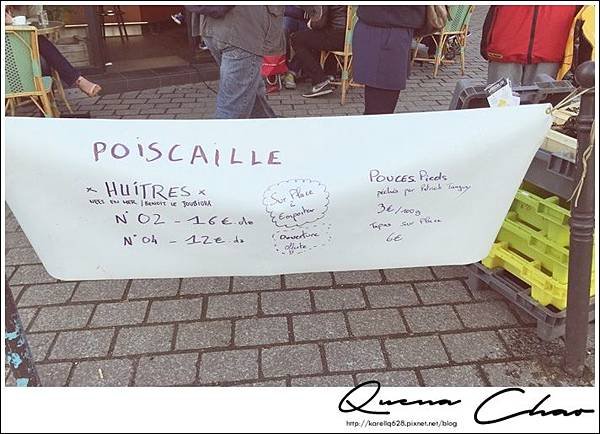 POISCAILLE
x HUÎTRES x
NÉES EN MER / BENOIT LE JOUBIOUX
N° 02 - 16€ dz
N° 04 - 12€ dz
Sur Place
Emporter
Ouverture
offerte
POUCES. Pieds
pêchés par Patrick Tanguy
3€/100g
Tapas sur Place
6€
Quena Chao
http://karellq628.pixnet.net/blog